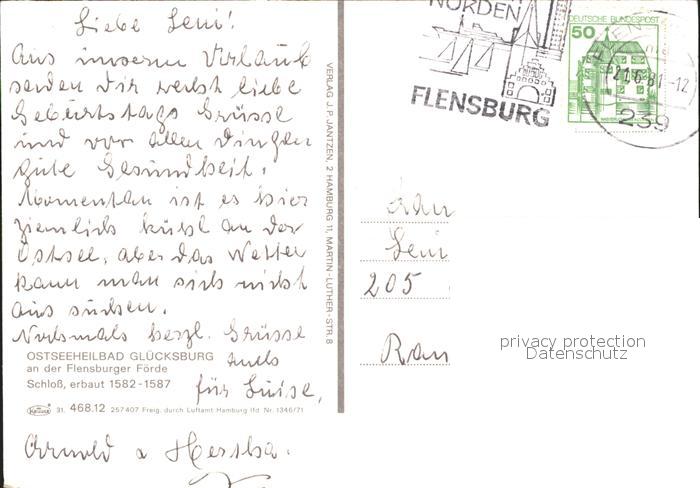 Liebe Leni!
Aus unserem Urlaub
senden dir recht liebe
Geburtstags Grüsse
und vor allen Dingen
gute Gesundheit.
Momentan ist es hier
ziemlich kühl an der
Ostsee, aber das Wetter
kann man sich nicht
aus suchen.
Nochmals herzl. Grüsse
auch
für Luise,
Arnold u Hertha.
OSTSEEHEILBAD GLÜCKSBURG
an der Flensburger Förde
Schloß, erbaut 1582-1587
Krüger 31. 468.12 257407 Freig. durch Luftamt Hamburg lfd Nr. 1346/71
VERLAG J. P. JANTZEN, 2 HAMBURG 11, MARTIN-LUTHER-STR. 8
NORDEN
FLENSBURG
DEUTSCHE BUNDESPOST
50
21.6.81-12
239
Frau
Leni
205
privacy protection
Datenschutz